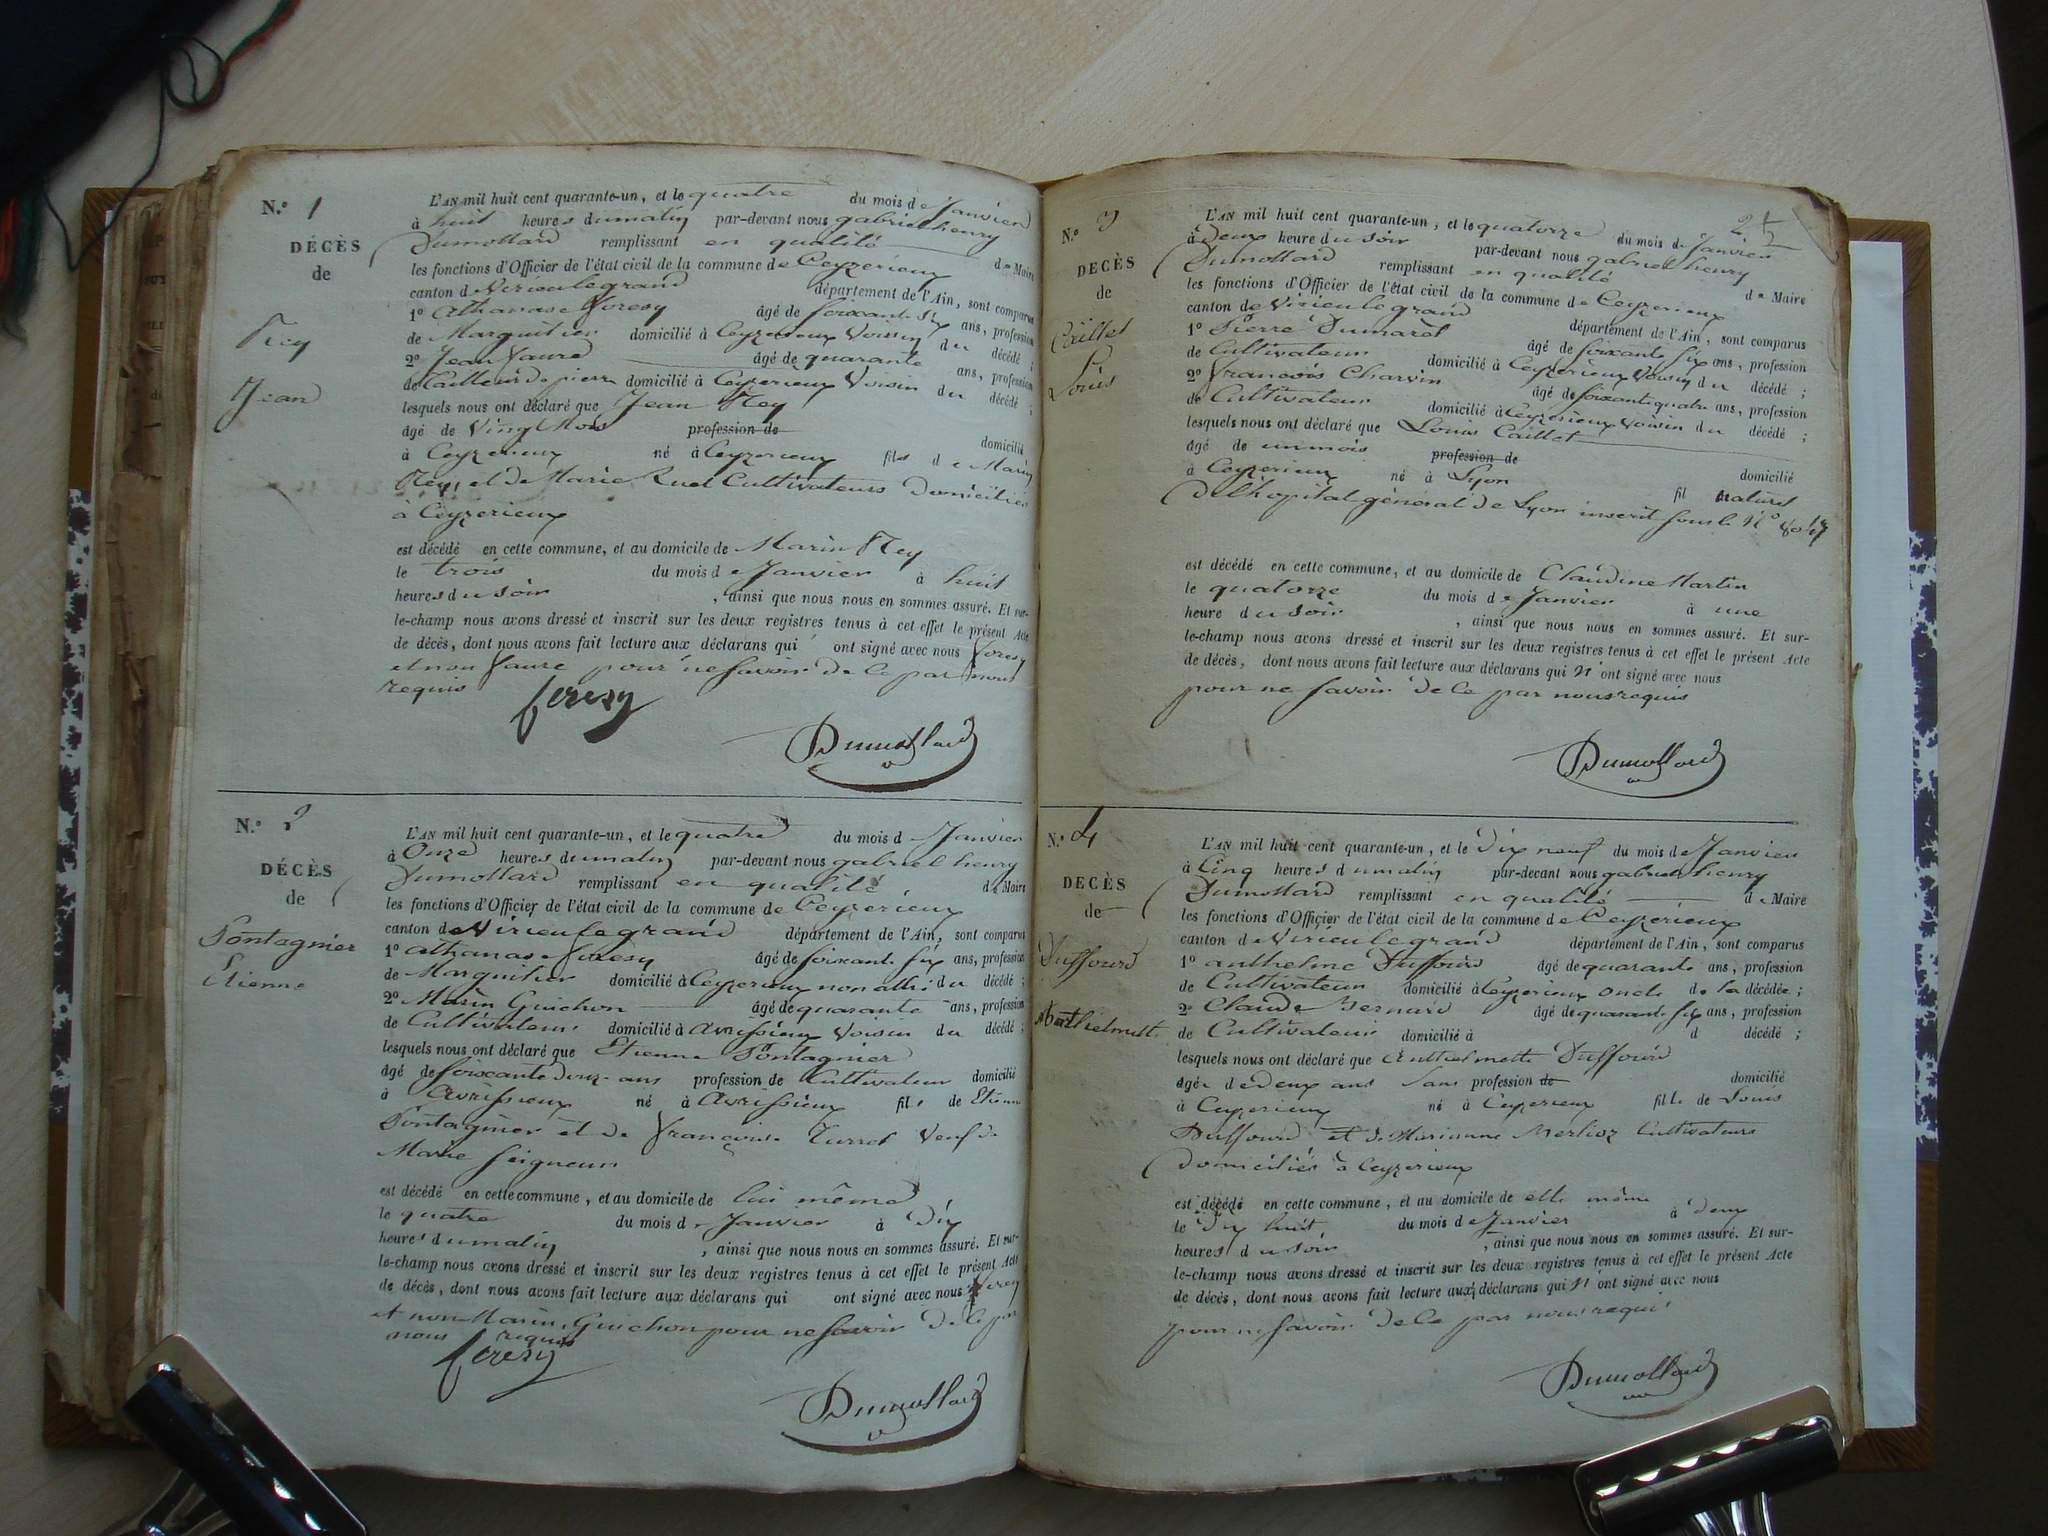 N.o 1
DÉCÈS
de
Rey
Jean
L'AN mil huit cent quarante-un, et le quatre du mois de Janvier
à huit heures du matin par-devant nous gabriel henry
Dumollard remplissant en qualité de Maire
les fonctions d'Officier de l'état civil de la commune de Ceyzerieux
canton de Virieulegrand département de l'Ain, sont comparus
1o Athanase Feresy âgé de soixante six ans, profession
de Marguillier domicilié à Ceyzerieux Voisin du décédé ;
2o Jean Faure âgé de quarante ans, profession
de Tailleur de pierre domicilié à Ceyzerieux Voisin du décédé ;
lesquels nous ont déclaré que Jean Rey
âgé de Vingt Mois profession de domicilié
à Ceyzerieux né à Ceyzerieux fils de Marin
Rey, et de Marie Ruet Cultivateurs domiciliés
à Ceyzerieux
est décédé en cette commune, et au domicile de Marin Rey
le trois du mois de Janvier à huit
heures du soir , ainsi que nous nous en sommes assuré. Et sur-
le-champ nous avons dressé et inscrit sur les deux registres tenus à cet effet le présent Acte
de décès, dont nous avons fait lecture aux déclarans qui ont signé avec nous Feresy
et non Faure pour ne savoir de ce par nous
requis
feresy
Dumollard
N.o 2
DÉCÈS
de
Pontagnier
Etienne
L'AN mil huit cent quarante-un, et le quatre du mois de Janvier
à Onze heures du matin par-devant nous gabriel henry
Dumollard remplissant en qualité de Maire
les fonctions d'Officier de l'état civil de la commune de Ceyzerieux
canton de Virieulegrand département de l'Ain, sont comparus
1o athanase Feresy âgé de soixante six ans, profession
de Marguillier domicilié à Ceyzerieux non allié du décédé ;
2o Marin Guichon âgé de quarante ans, profession
de Cultivateur domicilié à Avrissieux Voisin du décédé ;
lesquels nous ont déclaré que Etienne Pontagnier
âgé de soixante douze ans profession de Cultivateur domicilié
à Avrissieux né à Avrissieux fils de Etienne
Pontagnier et de françoise Turrel Veuf de
Marie Seigneur
est décédé en cette commune, et au domicile de lui même
le quatre du mois de Janvier à Dix
heures du matin , ainsi que nous nous en sommes assuré. Et sur-
le-champ nous avons dressé et inscrit sur les deux registres tenus à cet effet le présent Acte
de décès, dont nous avons fait lecture aux déclarans qui ont signé avec nous Feresy
et non Marin Guichon pour ne savoir de ce par
nous requis
feresy
Dumollard
2
N.o 3
DÉCÈS
de
Caillet
Louis
L'AN mil huit cent quarante-un, et le quatorze du mois de Janvier
à deux heure du soir par-devant nous gabriel henry
Dumollard remplissant en qualité de Maire
les fonctions d'Officier de l'état civil de la commune de Ceyzerieux
canton de Virieulegrand département de l'Ain, sont comparus
1o Pierre Dumarest âgé de soixante six ans, profession
de Cultivateur domicilié à Ceyzerieux Voisin du décédé ;
2o françois Charvin âgé de soixante quatre ans, profession
de Cultivateur domicilié à Ceyzerieux Voisin du décédé ;
lesquels nous ont déclaré que Louis Caillet
âgé de un mois profession de domicilié
à Ceyzerieux né à Lyon fil naturel
de l'hopital général de Lyon inscrit sous le No
est décédé en cette commune, et au domicile de Claudine Martin
le quatorze du mois de Janvier à une
heure du soir , ainsi que nous nous en sommes assuré. Et sur-
le-champ nous avons dressé et inscrit sur les deux registres tenus à cet effet le présent Acte
de décès, dont nous avons fait lecture aux déclarans qui n'ont signé avec nous
pour ne savoir de ce par nous requis
Dumollard
N.o 4
DÉCÈS
de
Duffourd
Anthelmette
L'AN mil huit cent quarante-un, et le Dix neuf du mois de Janvier
à Cinq heures du matin par-devant nous gabriel henry
Dumollard remplissant en qualité de Maire
les fonctions d'Officier de l'état civil de la commune de Ceyzerieux
canton de Virieulegrand département de l'Ain, sont comparus
1o anthelme Duffourd âgé de quarante ans, profession
de Cultivateur domicilié à Ceyzerieux oncle de la décédée ;
2o Claude Bernard âgé de quarante six ans, profession
de Cultivateur domicilié à d décédé ;
lesquels nous ont déclaré que Anthelmette Duffourd
âgée de deux ans sans profession de domicilié
à Ceyzerieux né à Ceyzerieux fille de Louis
Duffourd et de Marianne Merlioz Cultivateurs
domiciliés à Ceyzerieux
est décédé en cette commune, et au domicile de elle même
le Dix huit du mois de Janvier à deux
heures du soir , ainsi que nous nous en sommes assuré. Et sur-
le-champ nous avons dressé et inscrit sur les deux registres tenus à cet effet le présent Acte
de décès, dont nous avons fait lecture aux déclarans qui n'ont signé avec nous
pour ne savoir de ce par nous requis
Dumollard